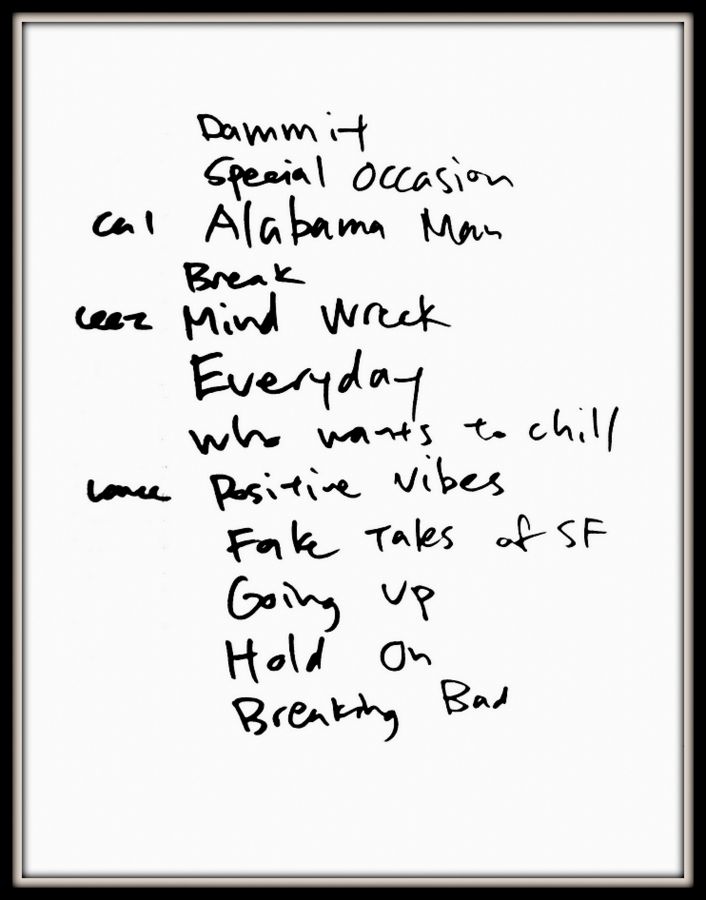 Dammit
Special Occasion
Cal Alabama Man
Break
Mind Wreck
Everyday
who wants to chill
Lance Positive Vibes
Fake Tales of SF
Going Up
Hold On
Breaking Bad